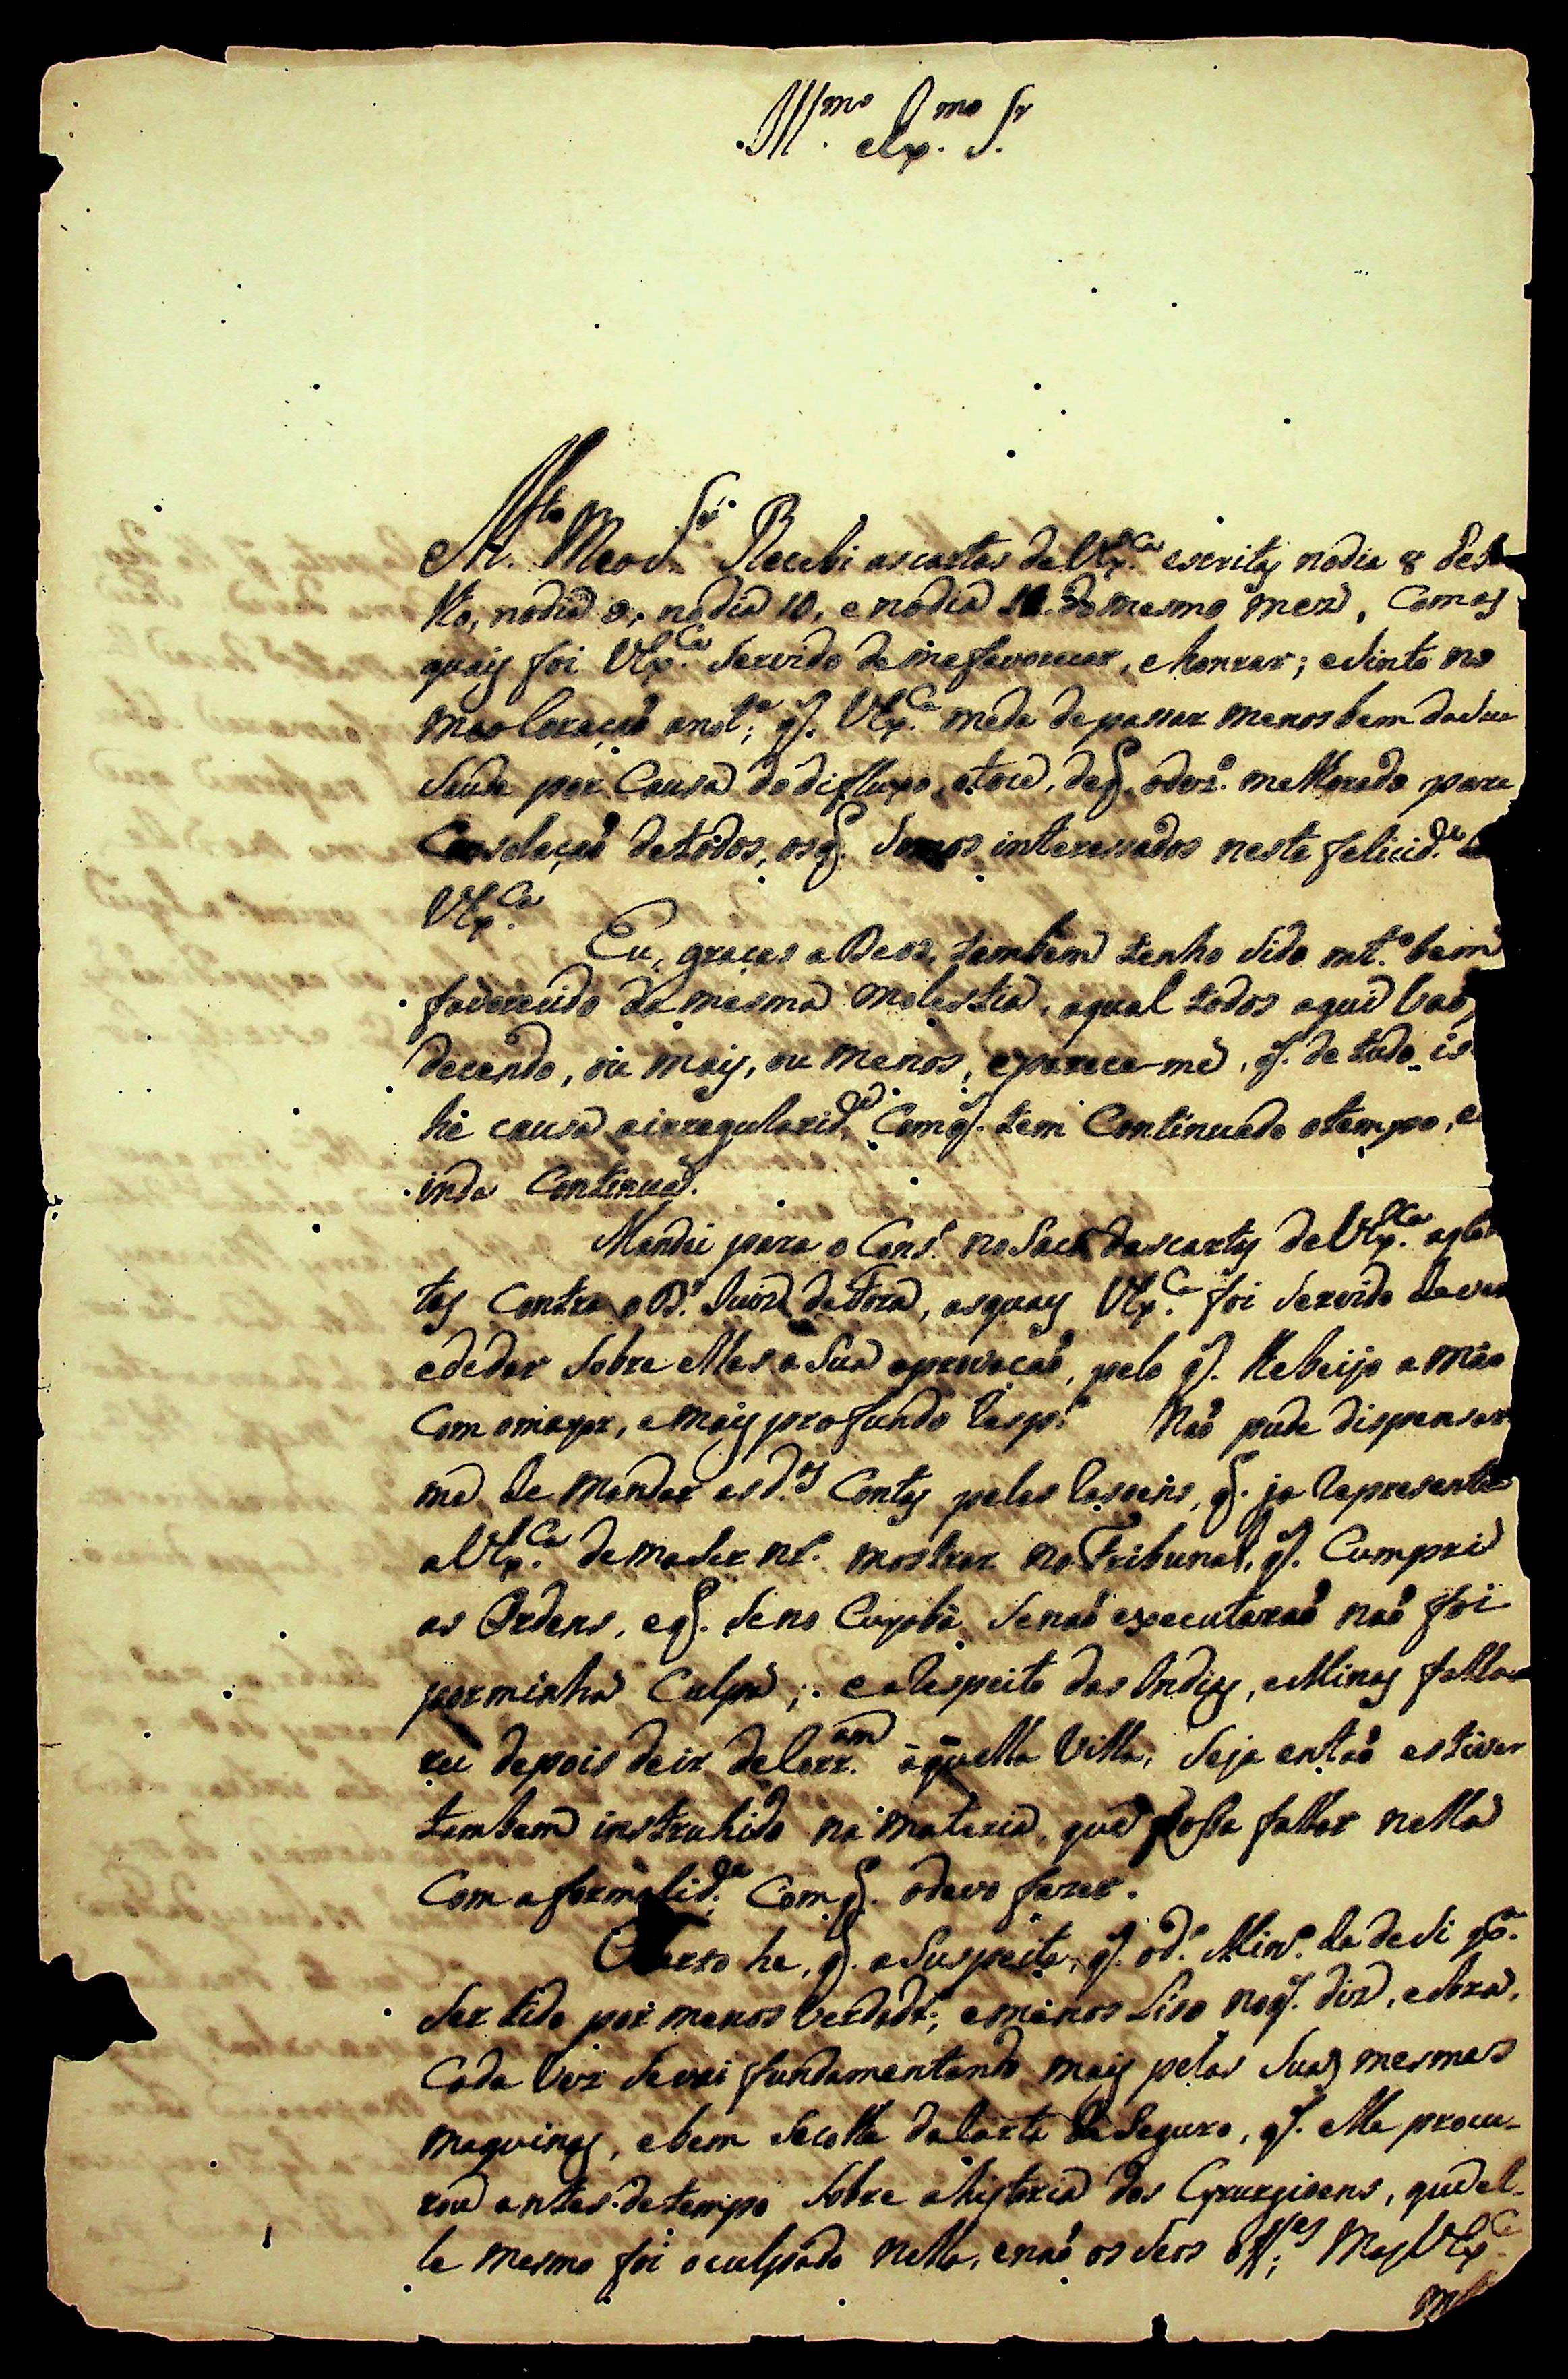 Ill.mo Ex.mo Sr.
M.to Meo Sr. Recebi as cartas de VEx.ca escritas no dia 8 des-
te, no dia 9, no dia 10, e no dia do mesmo mez, Com as
quais foi VEx.ca Servido de me favorecer, e honrar; e Sinto no
meo Coraçaõ a not.a q. VEx.ca me da de passar menos bem da Sua
Saude por Causa do difluxo, e toce, de q. o dez.o melhorado para
Consolaçaõ de todos, os q. Somos interessados nesta felicid.e
VEx.ca
Eu, graças a Deos, tambem tenho Sido mt.o bem
favorecido da mesma molestia, a qual todos aqui vaõ
decendo, ou mais, ou menos, e parece-me, q. de tudo is
he causa a irregularid.e Com q. tem Continuado o tempo, e
inda Continua.
Mandei para o Cons.o no Saco das cartas de VEx.ca as
tas Contra o D.r Juiz de Fora, as quais VEx.ca foi Servido de ver
e de dar Sobre ellas a Sua aprovaçaõ, pelo q. lhe beijo a maõ
Com o mayor, e mais profundo resp.o Naõ pude dispensar
me de mandar as d.as Contas pelas razoens, q. ja representei
a VEx.ca de me Ser mostrar no Tribunal, q. Cumpri
as Ordens, e q. Se no Cuyabá Se naõ executaraõ naõ foi
por minha Culpa; e a respeito das Indias, e Minas falla
rei depois de ir de Corr.am áquella Villa, Se ja entaõ estiver
tambem instruhido na materia, que possa fallar nella
Com a formalid.e Com q. o devo fazer.
Certo he, q. a Suspeita, q. o d.o Min.o da de Si p.a
Ser tido por menos verdadr.o, e menos Liso no q. diz, e obra,
Cada vez Se vai fundamentando mais pelas Suas mesmas
maquinas, e bem Se colhe da Carta de Seguro, q. elle procu-
rou antes de tempo Sobre a historia dos Cyrurgioens, que el-
le mesmo foi o culpado nella, e naõ os Seos Off.es Mas VEx.ca